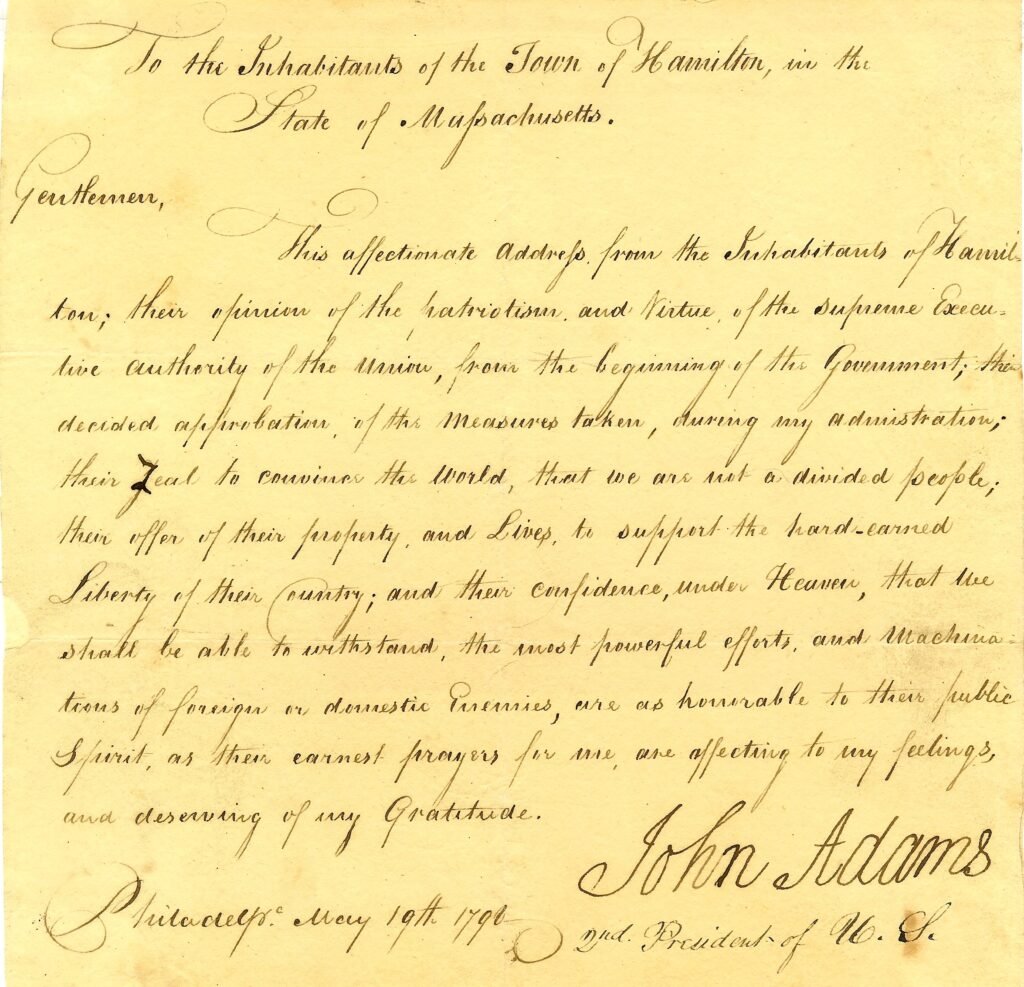 To the Inhabitants of the Town of Hamilton, in the
State of Massachusetts.
Gentlemen,
This affectionate Address, from the Inhabitants of Hamil-
ton; their opinion of the patriotism, and Virtue, of the supreme Execu-
tive authority of the Union, from the beginning of the Government; their
decided approbation, of the Measures taken, during my administration;
their Zeal to convince the World, that we are not a divided people;
their offer of their property, and Lives, to support the hard-earned
Liberty of their Country; and their confidence, under Heaven, that We
shall be able to withstand, the most powerful efforts, and Machina-
tions of foreign or domestic Enemies, are as honorable to their public
Spirit, as their earnest prayers for me, are affecting to my feelings,
and deserving of my Gratitude.
John Adams
Philadelpa May 19th 1798
2nd. President of U. S.